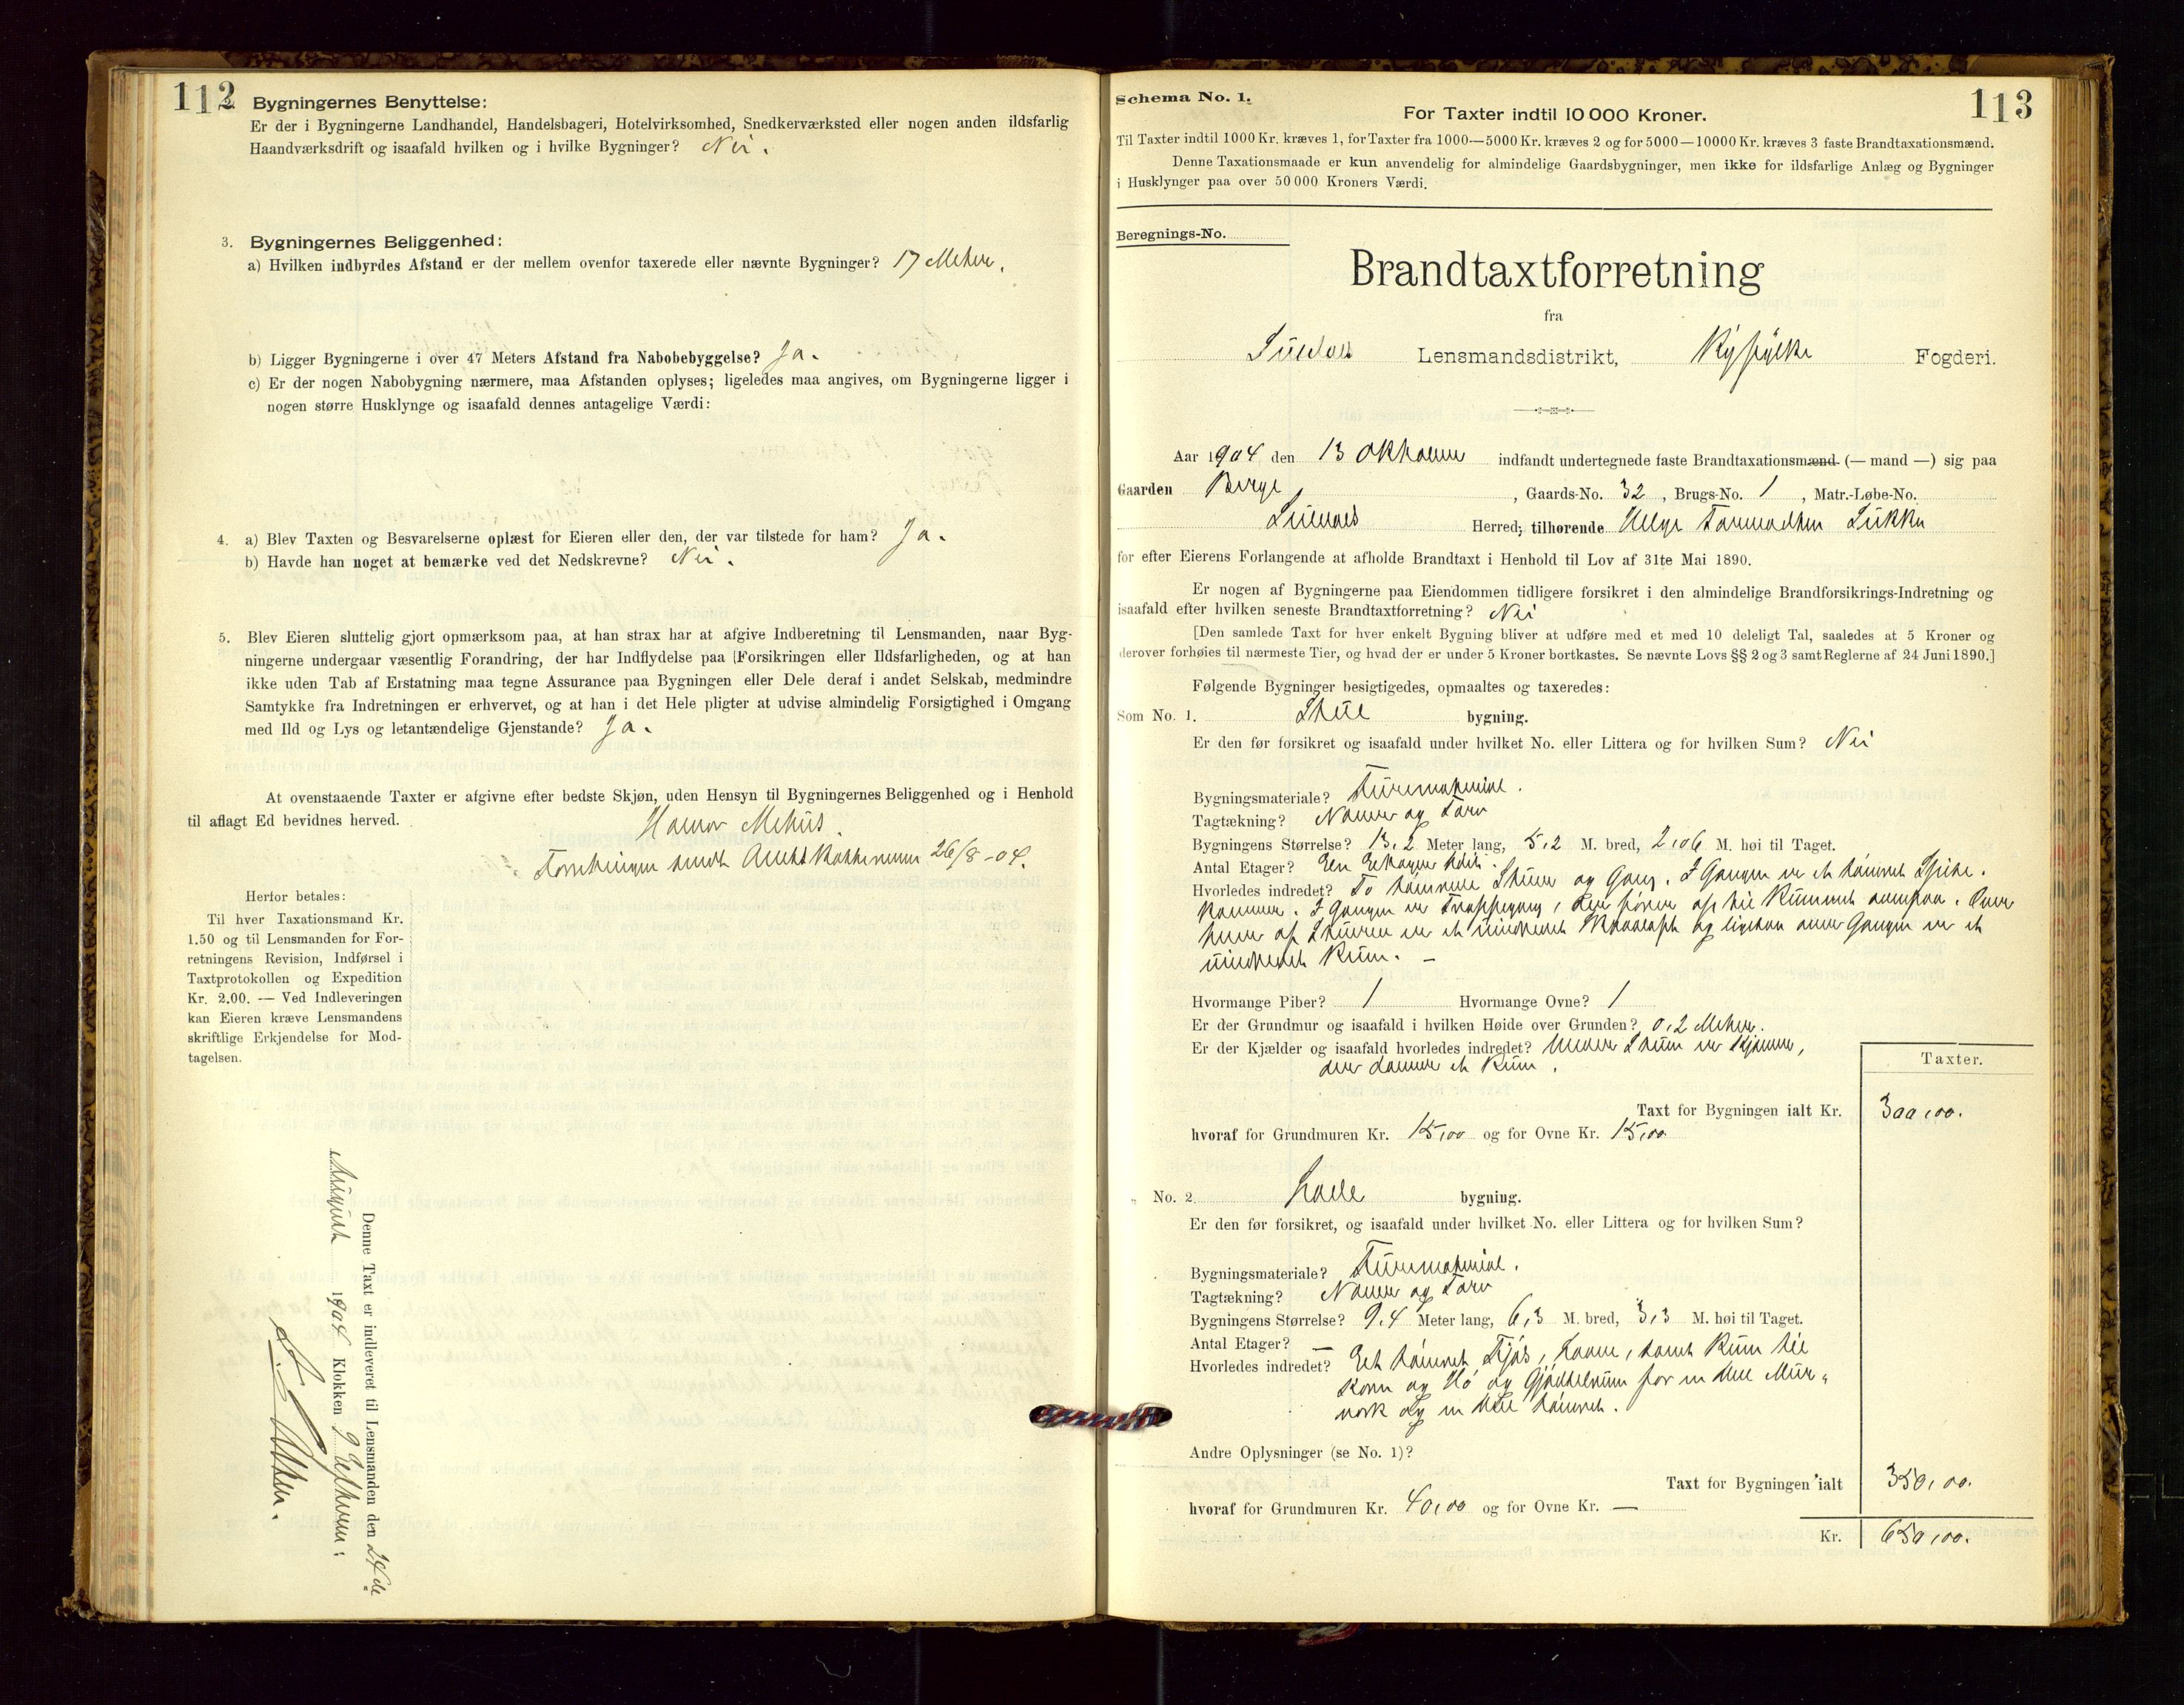 112
2. Bygningernes Benyttelse:
Er der i Bygningerne Landhandel, Handelsbageri, Hotelvirksomhed, Snedkerværksted eller nogen anden ildsfarlig
Haandværksdrift og isaafald hvilken og i hvilke Bygninger? Nei.
3. Bygningernes Beliggenhed:
a) Hvilken indbyrdes Afstand er der mellem ovenfor taxerede eller nævnte Bygninger? 17 Meter.
b) Ligger Bygningerne i over 47 Meters Afstand fra Nabobebyggelse? Ja.
c) Er der nogen Nabobygning nærmere, maa Afstanden oplyses; ligeledes maa angives, om Bygningerne ligger i
nogen større Husklynge og isaafald dennes antagelige Værdi:
4. a) Blev Taxten og Besvarelserne oplæst for Eieren eller den, der var tilstede for ham? Ja.
b) Havde han noget at bemærke ved det Nedskrevne? Nei.
5. Blev Eieren sluttelig gjort opmærksom paa, at han strax har at afgive Indberetning til Lensmanden, naar Byg-
ningerne undergaar væsentlig Forandring, der har Indflydelse paa (Forsikringen eller Ildsfarligheden, og at han
ikke uden Tab af Erstatning maa tegne Assurance paa Bygningen eller Dele deraf i andet Selskab, medmindre
Samtykke fra Indretningen er erhvervet, og at han i det Hele pligter at udvise almindelig Forsigtighed i Omgang
med Ild og Lys og letantændelige Gjenstande? Ja.
At ovenstaaende Taxter er afgivne efter bedste Skjøn, uden Hensyn til Bygningernes Beliggenhed og i Henhold
til aflagt Ed bevidnes herved.
Halvor Mehus.
Forretningen sendt 26/8-04.
Herfor betales:
Til hver Taxationsmand Kr.
1.50 og til Lensmanden for For-
retningens Revision, Indførsel i
Taxtprotokollen og Expedition
Kr. 2.00. — Ved Indleveringen
kan Eieren kræve Lensmandens
skriftlige Erkjendelse for Mod-
tagelsen.
Denne Taxt er indleveret til Lensmanden den 24de
August 1904 Klokken 9 Efterm.
113
Schema No. 1.
For Taxter indtil 10 000 Kroner.
Til Taxter indtil 1000 Kr. kræves 1, for Taxter fra 1000—5000 Kr. kræves 2 og for 5000—10000 Kr. kræves 3 faste Brandtaxationsmænd.
Denne Taxationsmaade er kun anvendelig for almindelige Gaardsbygninger, men ikke for ildsfarlige Anlæg og Bygninger
i Husklynger paa over 50 000 Kroners Værdi.
Beregnings-No.
Brandtaxtforretning
fra
Suldal Lensmandsdistrikt, Ryfylke Fogderi.
Aar 1904 den 13 Oktober indfandt undertegnede faste Brandtaxationsmænd (— mand —) sig paa
Gaarden Berge, Gaards-No. 32, Brugs-No. 1, Matr.-Løbe-No.
Suldals Herred; tilhørende Helge Tormodsen
for efter Eierens Forlangende at afholde Brandtaxt i Henhold til Lov af 31te Mai 1890.
Er nogen af Bygningerne paa Eiendommen tidligere forsikret i den almindelige Brandforsikrings-Indretning og
isaafald efter hvilken seneste Brandtaxtforretning? Nei
[Den samlede Taxt for hver enkelt Bygning bliver at udføre med et med 10 deleligt Tal, saaledes at 5 Kroner og
derover forhøies til nærmeste Tier, og hvad der er under 5 Kroner bortkastes. Se nævnte Lovs §§ 2 og 3 samt Reglerne af 24 Juni 1890.]
Følgende Bygninger besigtigedes, opmaaltes og taxeredes:
Som No. 1. Stue bygning.
Er den før forsikret og isaafald under hvilket No. eller Littera og for hvilken Sum? Nei
Bygningsmateriale? Furemateriel.
Tagtækning? Næver og Torv
Bygningens Størrelse? 13,2 Meter lang, 5,2 M. bred, 2,06 M. høi til Taget.
Antal Etager? En Etages høit.
Hvorledes indredet? To tømrede Stuer og Gang. I Gangen er et tømret Spise-
kammer. I Gangen er Trappegang, der fører op til Rummet ovenpaa. Over
hver af Stuerne er et uindredet og ligesaa over Gangen er et
uindredet Rum. —
Hvormange Piber? 1 Hvormange Ovne? 1
Er der Grundmur og isaafald i hvilken Høide over Grunden? 0,2 Meter.
Er der Kjælder og isaafald hvorledes indredet? Under Stuen er Kjælder,
der danner et Rum.
Taxter.
Taxt for Bygningen ialt Kr. 300,00.
hvoraf for Grundmuren Kr. 15,00 og for Ovne Kr. 15,00
„ No. 2. Lade bygning.
Er den før forsikret, og isaafald under hvilket No. eller Littera og for hvilken Sum?
Bygningsmateriale? Furemateriel.
Tagtækning? Næver og Torv
Bygningens Størrelse? 9,4 Meter lang, 6,3 M. bred, 3,3 M. høi til Taget.
Antal Etager? —
Hvorledes indredet? Et tømret Fjøs, Laave, samt Rum til
Korn og Hø og Gjødselrum for en Del Mur-
verk og en Del tømret.
Andre Oplysninger (se No. 1)?
Taxt for Bygningen ialt 350,00.
hvoraf for Grundmuren Kr. 40,00 og for Ovne Kr. —
Kr. 650,00.